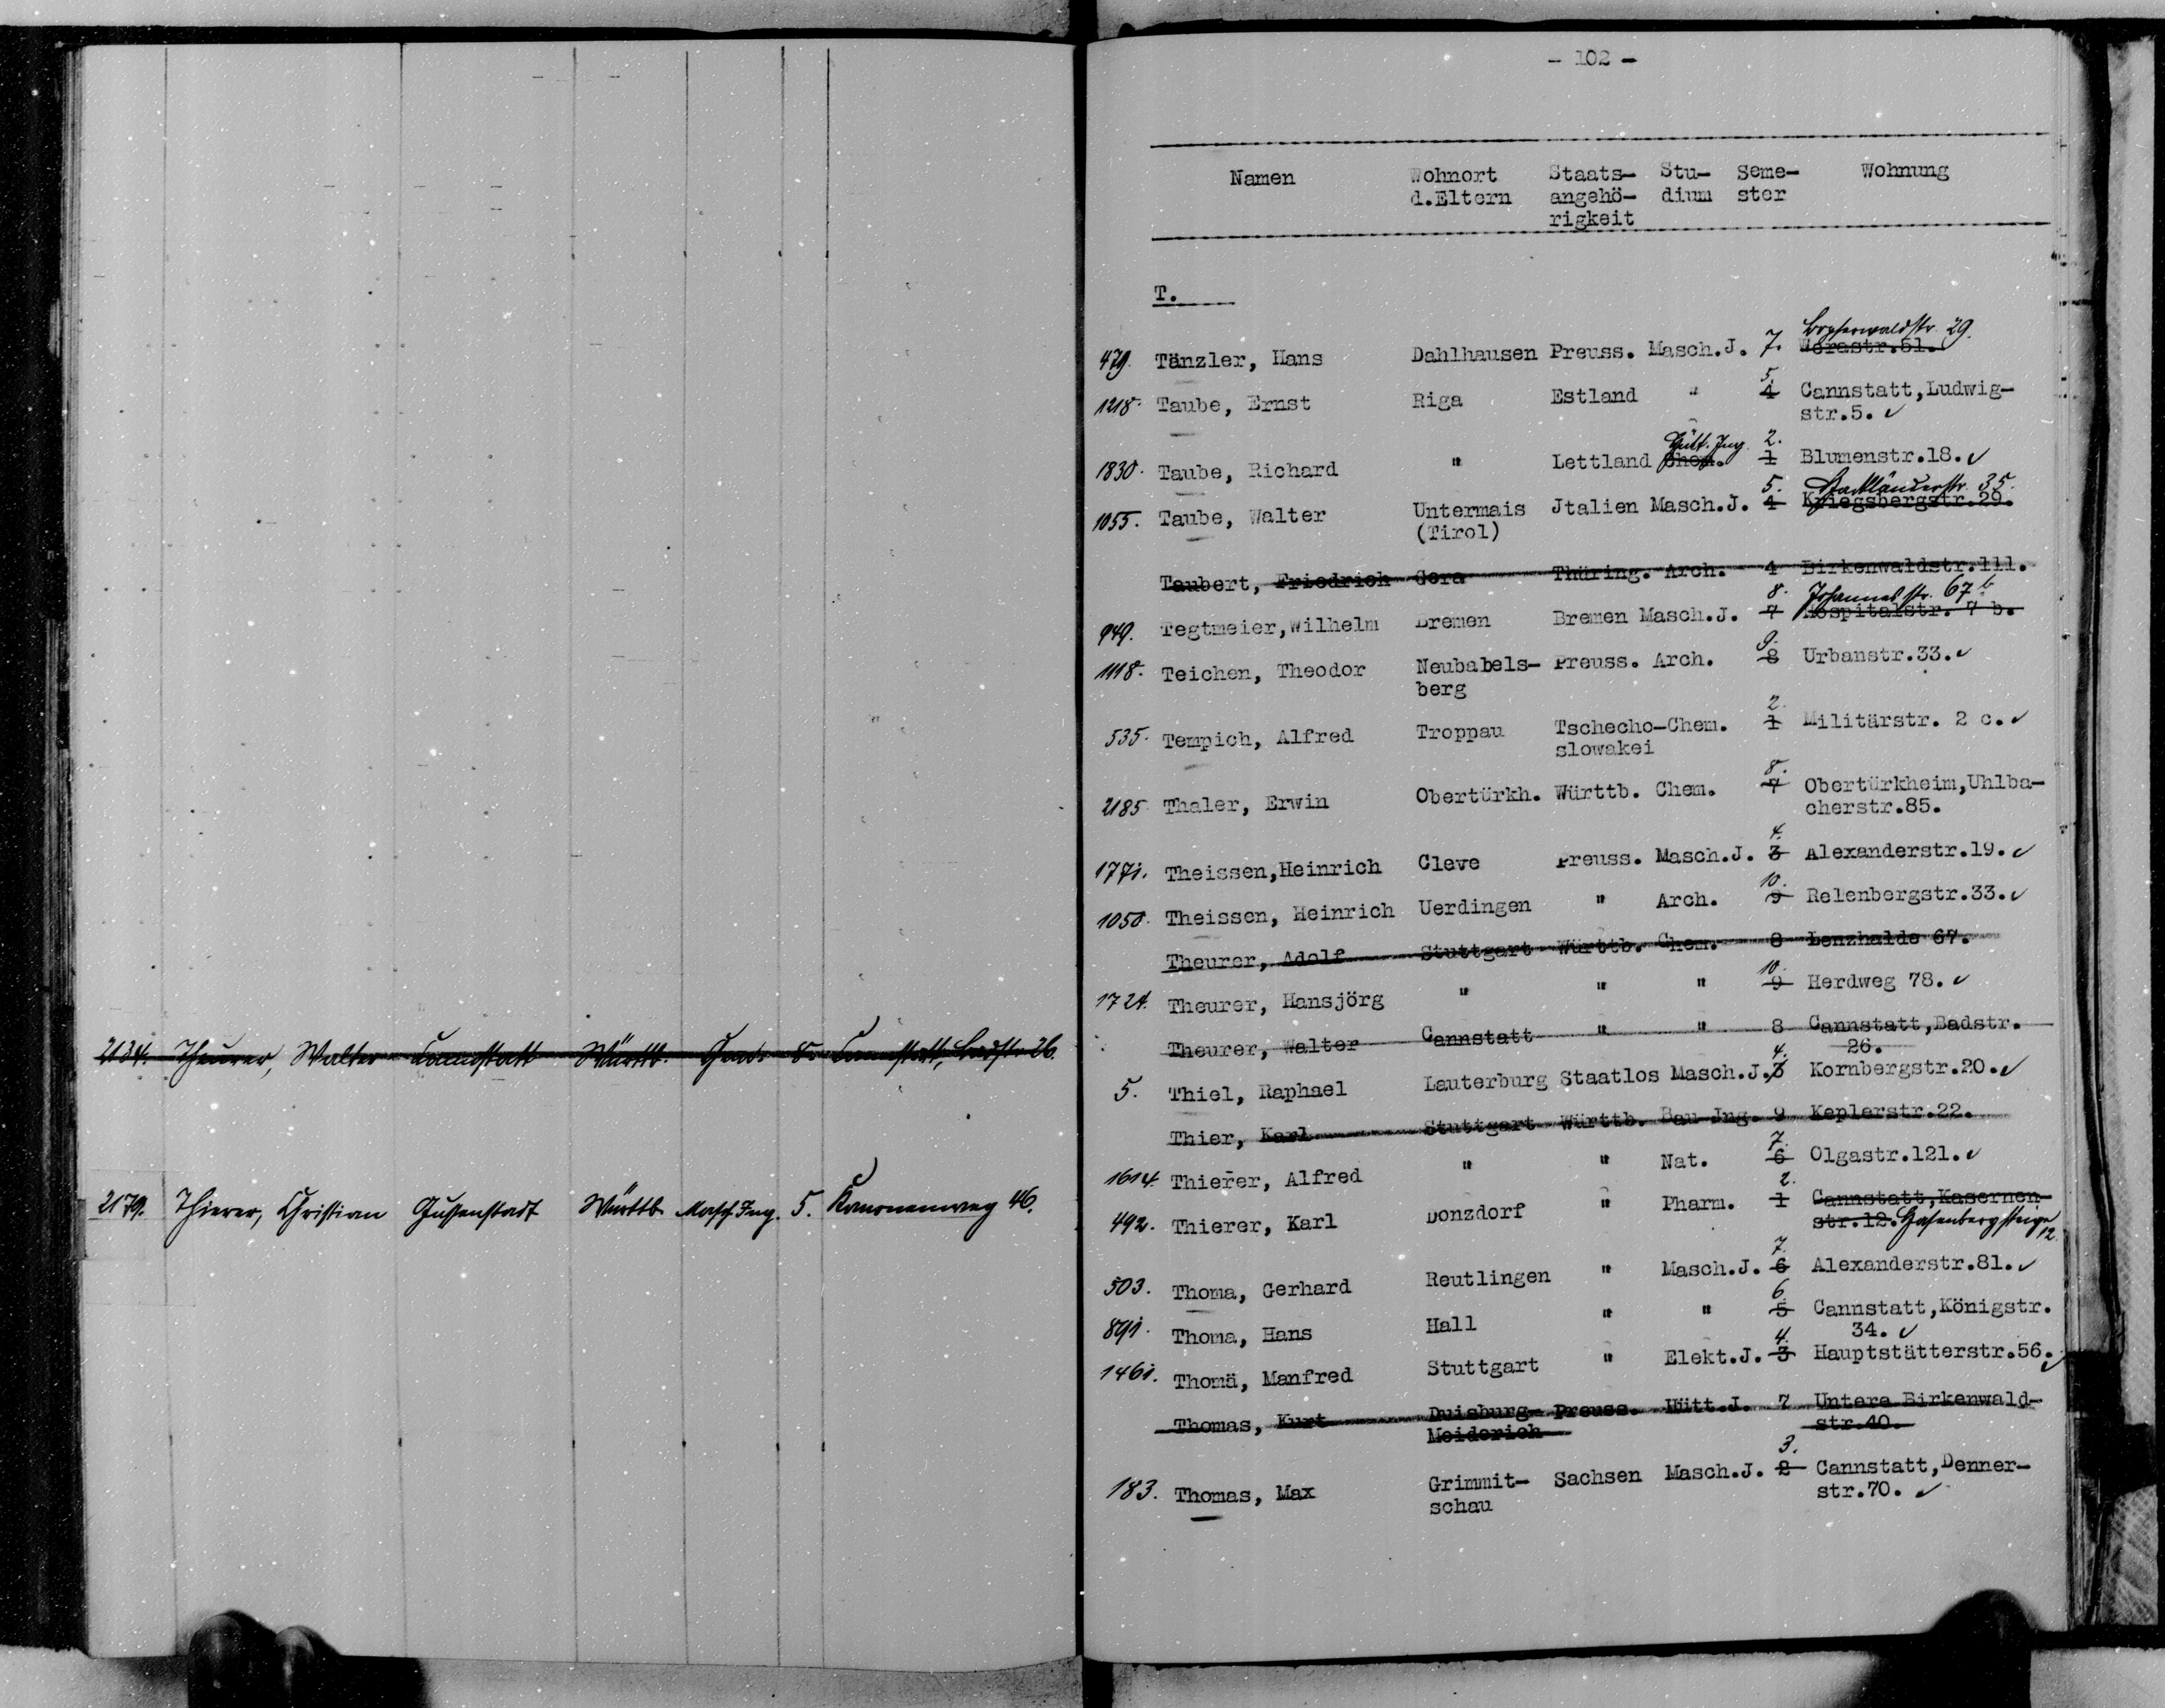 2134. Theurer, Walter Cannstatt Württb. Chem. 8. Cannstatt, Badstr. 26.
2179. Thierer, Christian Gussenstadt Württb. Masch.Ing. 5. Kanonenweg 46.
- 102 -
Namen Wohnort Staats- Stu- Seme- Wohnung
d.Eltern angehö- dium ster
rigkeit
T.
Bopserwaldstr. 29.
479. Tänzler, Hans Dahlhausen Preuss. Masch.J. 7. Werastr.51.
5.
1218. Taube, Ernst Riga Estland " 4 Cannstatt,Ludwig-
str.5. ✓
Hütt. Ing. 2.
1830. Taube, Richard " Lettland Chem. 1 Blumenstr.18. ✓
5. Hackländerstr. 35.
1055. Taube, Walter Untermais Jtalien Masch.J. 4 Kriegsbergstr.29.
(Tirol)
Taubert, Friedrich Gera Thüring. Arch. 4 Birkenwaldstr.111.
8. Johannesstr. 67 b
949. Tegtmeier,Wilhelm Bremen Bremen Masch.J. 7 Hospitalstr. 7 b.
9.
1118. Teichen, Theodor Neubabels- Preuss. Arch. 8 Urbanstr.33. ✓
berg
2.
535. Tempich, Alfred Troppau Tschecho-Chem. 1 Militärstr. 2 c. ✓
slowakei
8.
2185 Thaler, Erwin Obertürkh. Württb. Chem. 7 Obertürkheim,Uhlba-
cherstr.85.
4.
1771. Theissen,Heinrich Cleve Preuss. Masch.J. 3 Alexanderstr.19. ✓
10.
1050. Theissen, Heinrich Uerdingen " Arch. 9 Relenbergstr.33. ✓
Theurer, Adolf Stuttgart Württb. Chem. 8 Lenzhalde 67.
10.
1724. Theurer, Hansjörg " " " 9 Herdweg 78. ✓
Theurer, Walter Cannstatt " " 8 Cannstatt,Badstr.
26.
4.
5. Thiel, Raphael Lauterburg Staatlos Masch.J. 3 Kornbergstr.20. ✓
Thier, Karl Stuttgart Württb. Bau-Jng. 9 Keplerstr.22.
7.
1614. Thierer, Alfred " " Nat. 6 Olgastr.121. ✓
2.
492. Thierer, Karl Donzdorf " Pharm. 1 Cannstatt,Kasernen-
str.12. Hasenbergsteige 12.
7.
503. Thoma, Gerhard Reutlingen " Masch.J. 6 Alexanderstr.81. ✓
6.
891. Thoma, Hans Hall " " 5 Cannstatt,Königstr.
34. ✓
4.
1461. Thomä, Manfred Stuttgart " Elekt.J. 3 Hauptstätterstr.56. ✓
Thomas, Kurt Duisburg- Preuss. Hütt.J. 7 Untere Birkenwald-
Meiderich str.40.
3.
183. Thomas, Max Grimmit- Sachsen Masch.J. 2 Cannstatt,Denner-
schau str.70. ✓